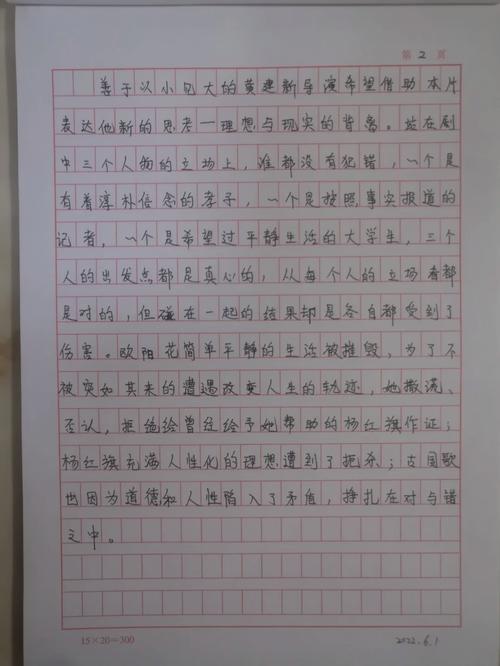 第 2 页
善于以小见大的黄建新导演希望借助本片
表达他新的思考—理想与现实的背鲁。站在剧
中三个人物的立场上，谁都没有犯错，一个是
有着淳朴信念的孝子，一个是按照事实报道的
记者，一个是希望过平静生活的大学生，三个
人的出发点都是真心的，从每个人的立场看都
是对的，但碰在一起的结果却是各自都受到了
伤害。欧阳花简单平静的生活被摧毁，为了不
被突如其来的遭遇改变人生的轨迹，她撒谎、
否认，拒绝给曾经给予她帮助的杨红旗作证；
杨红旗充满人性化的理想遭到了扼杀；古国歌
也因为道德和人性陷入了矛盾，挣扎在对与错
之中。
15×20=300
2022.6.1